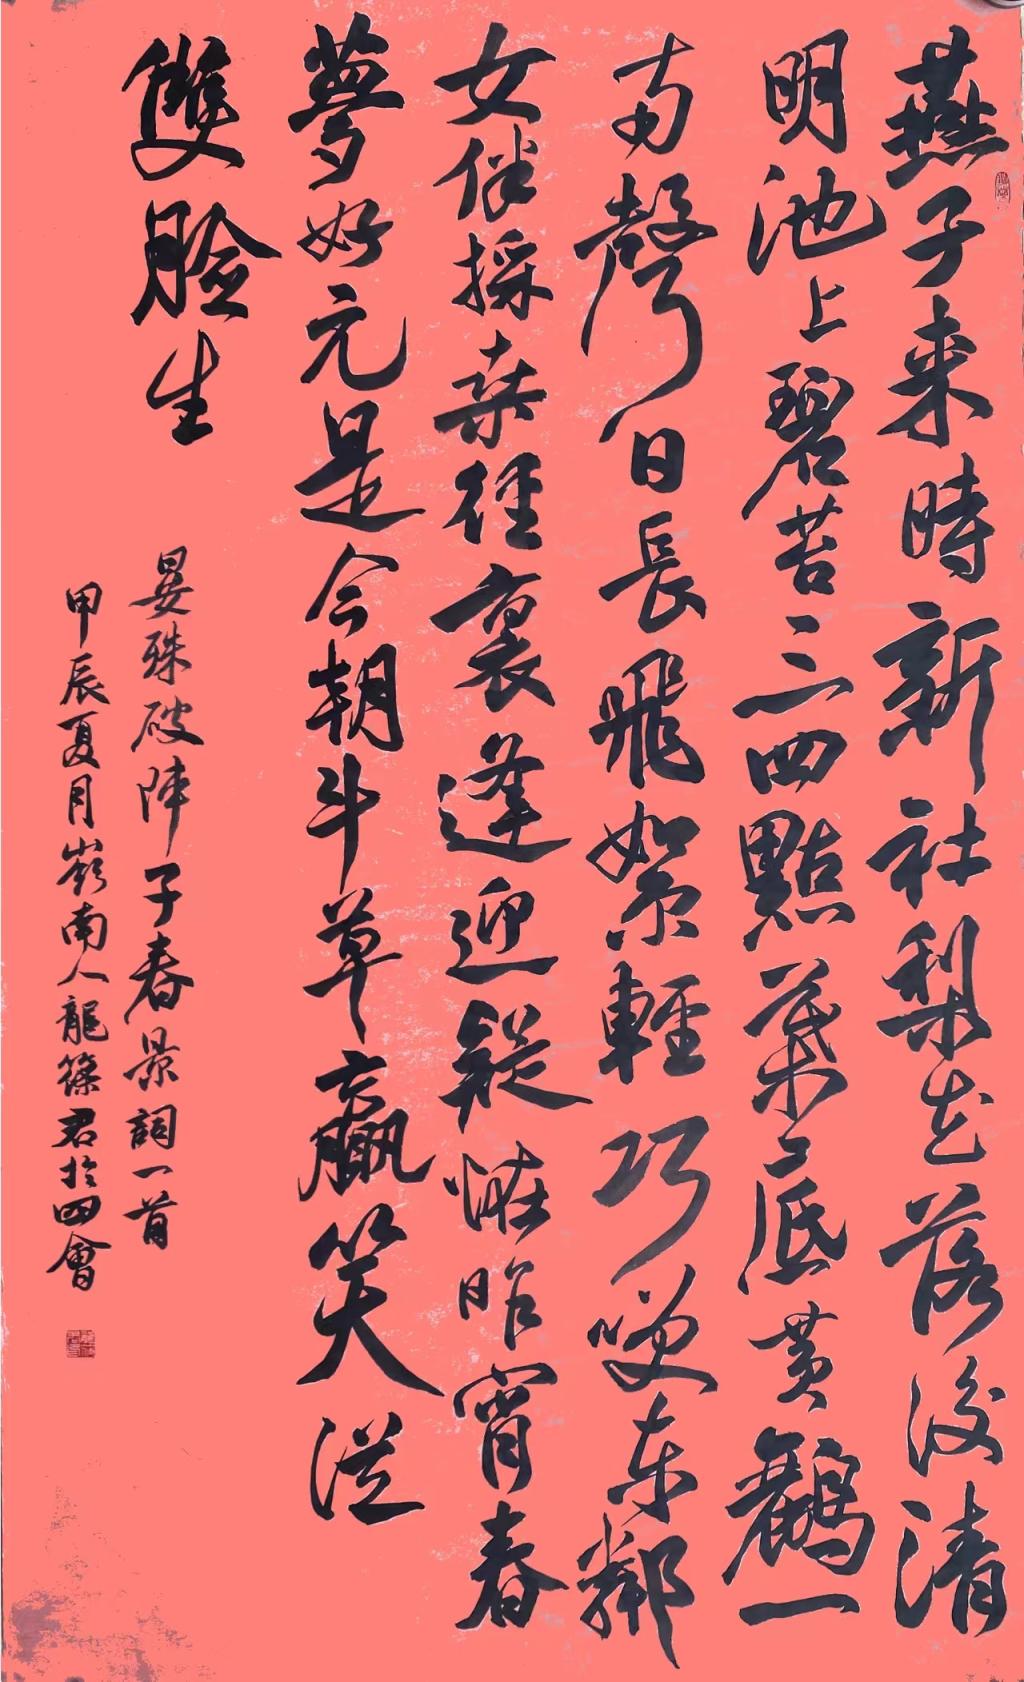 燕子来時新社梨花落後清
明池上碧苔三四點葉底黄鸝一
两聲日長飛絮輕巧笑东鄰
女伴採桑徑裏逢迎疑怪昨宵春
夢好元是今朝斗草贏笑從
雙臉生
晏殊破陣子春景詞一首
甲辰夏月嶺南人龍篠君於四會